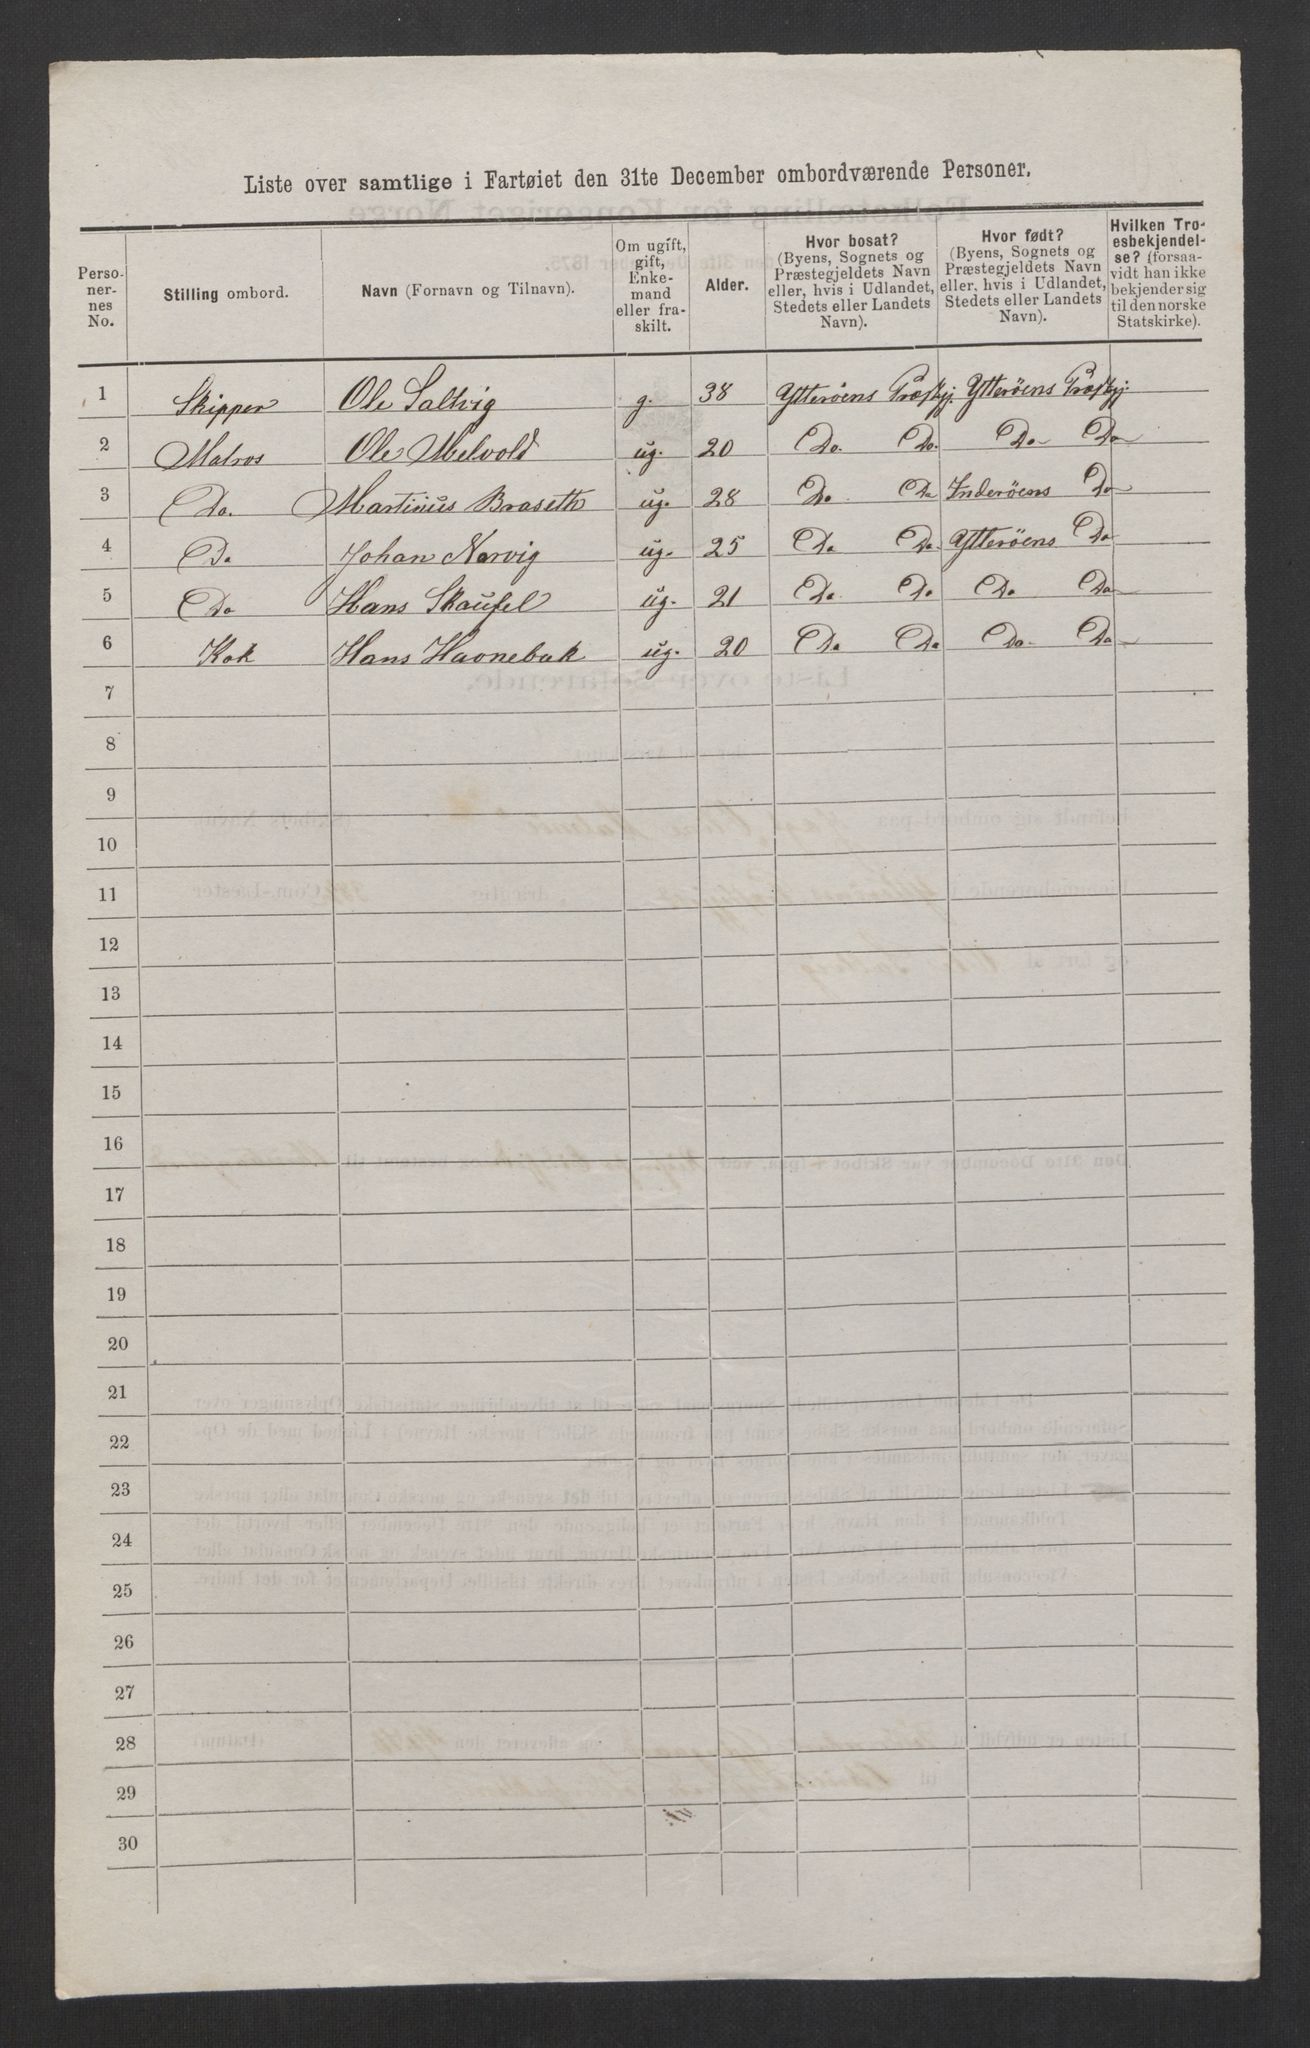 Liste over samtlige i Fartøiet den 31te December ombordværende Personer.
Perso-
ner-
nes
No.
Stilling ombord.
Navn (Fornavn og Tilnavn).
Om ugift,
gift,
Enke-
mand
eller fra-
skilt.
Alder.
Hvor bosat?
(Byens, Sognets og
Præstegjeldets Navn
eller, hvis i Udlandet,
Stedets eller Landets
Navn).
Hvor født?
(Byens, Sognets og
Præstegjeldets Navn
eller, hvis i Udlandet,
Stedets eller Landets
Navn).
Hvilken Tro-
esbekjendel-
se? (forsaa-
vidt han ikke
bekjender sig
til den norske
Statskirke).
1 Skipper Ole Saltvig g. 38 Ytterøens Præstgj. Ytterøens Præstgj.
2 Matros Ole Melvold ug. 20 Do. Do. Do Do
3 Do. Martinus Braseth ug. 28 Do Do Inderøens Do
4 Do Johan Norvig ug. 25 Do Do Ytterøens Do
5 Do Hans Skaufel ug. 21 Do Do Do Do
6 Kok Hans Havnebak ug. 20 Do Do Do Do
7
8
9
10
11
12
13
14
15
16
17
18
19
20
21
22
23
24
25
26
27
28
29
30